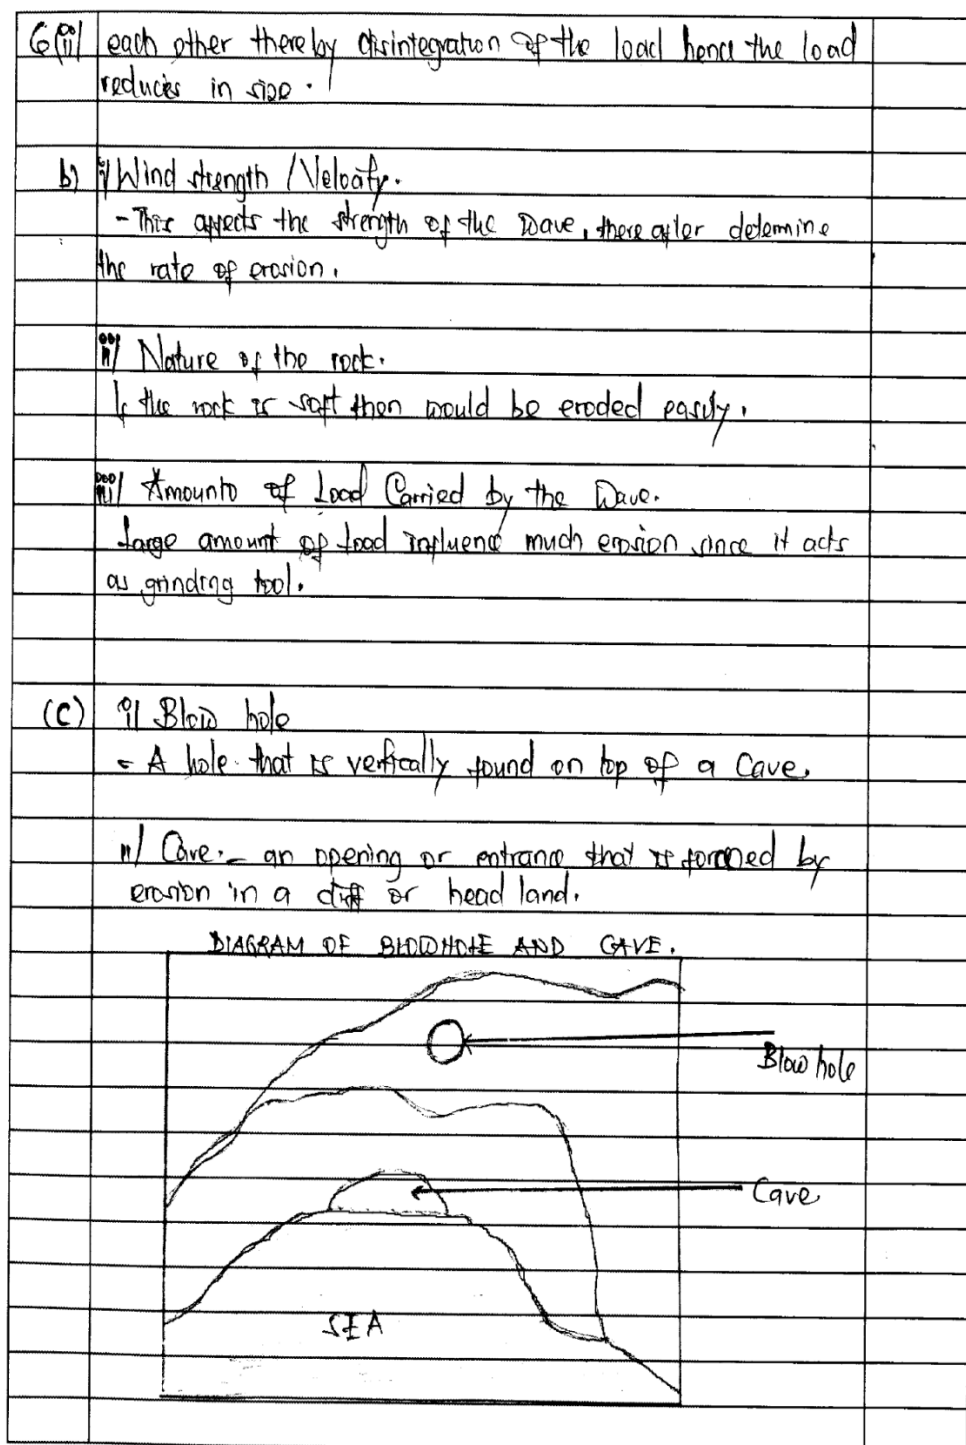 6(ii) each other thereby disintegration of the load hence the load
reduces in size.
b) i/ Wind strength / Velocity.
- This affects the strength of the wave, there after determine
the rate of erosion.
ii/ Nature of the rock.
If the rock is soft then would be eroded easily.
iii/ Amounto of Load Carried by the Wave.
Large amount of load influence much erosion since it acts
as grinding tool.
(c) i/ Blow hole
- A hole that is vertically found on top of a Cave.
ii/ Cave:- an opening or entrance that is formed by
erosion in a cliff or head land.
DIAGRAM OF BLOWHOLE AND CAVE.
Blow hole
Cave
SEA